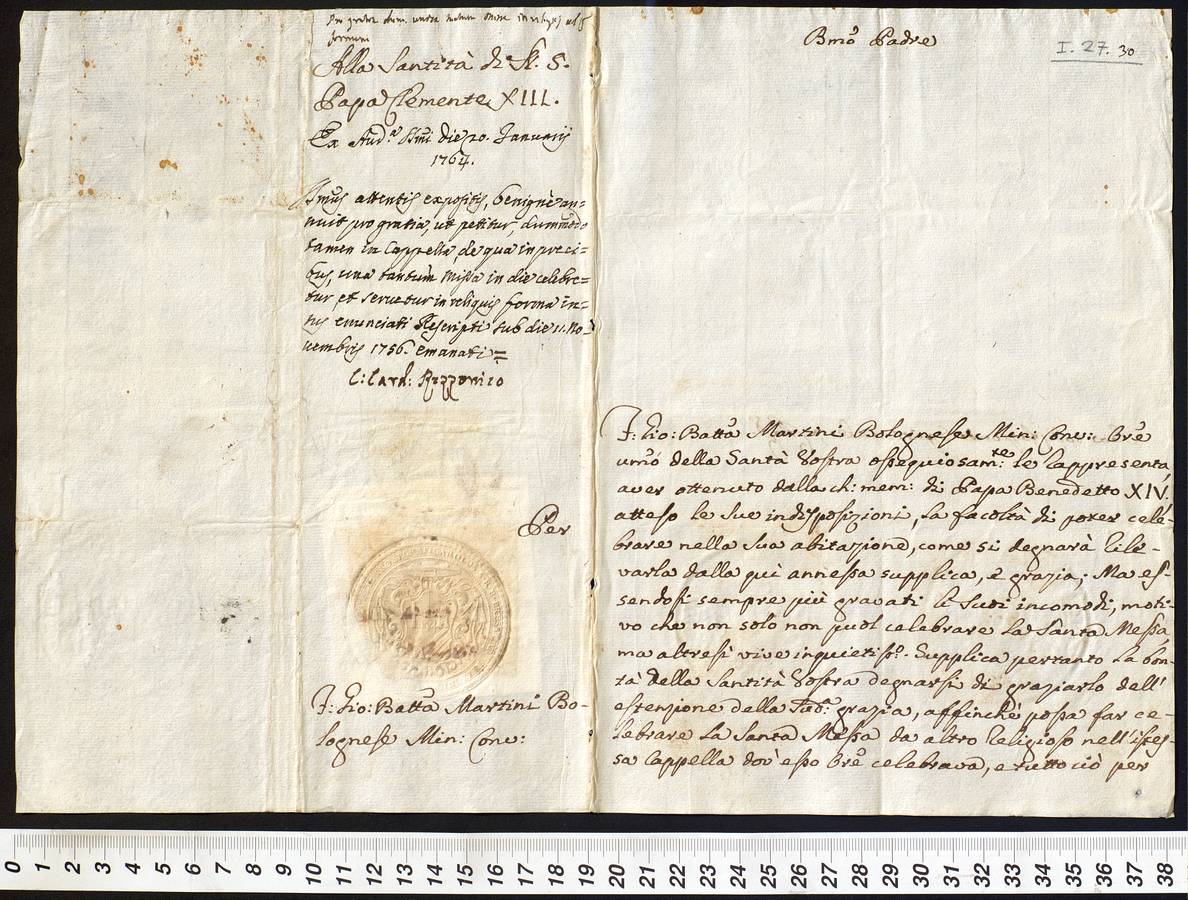 Alla Santità di N. S.
Papa Clemente XIII.
Ex Aud.ª SSmi die 20. Januarij
1764.
SSmus attentis expositis, benignè an=
nuit pro gratia, ut petitur, dummodo
tamen in Cappella, de qua in preci=
bus, una tantùm Missa in die celebre=
tur, et servetur in reliquis forma in=
tus enunciati Rescripti sub die 11. No=
vembris 1756. emanati=
C: Card: Rezzonico
Per
F: Gio: Batta Martini Bo-
lognese Min: Conv:
Bmo Padre
I. 27. 30
F: Gio: Batta Martini Bolognese Min: Conv: Ore
umo della Santà Vostra ossequiosam.te le rappresenta,
aver ottenuto dalla ch: mem: di Papa Benedetto XIV.
atteso le sue indisposizioni, la facoltà di poter cele-
brare nella sua abitazione, come si degnarà rile-
varla dalla quì annessa supplica, e grazia. Ma es-
sendosi sempre più gravati li suoi incomodi, moti-
vo che non solo non puol celebrare la Santa Messa,
ma altresì vive inquietisso. Supplica pertanto la bon-
tà della Santità Vostra degnarsi di graziarlo dell'
estenzione della sudª. grazia, affinchè possa far ce-
lebrare la Santa Messa da altro Religioso nell'istes-
sa Cappella dov'esso Ore celebrava, e tutto ciò per